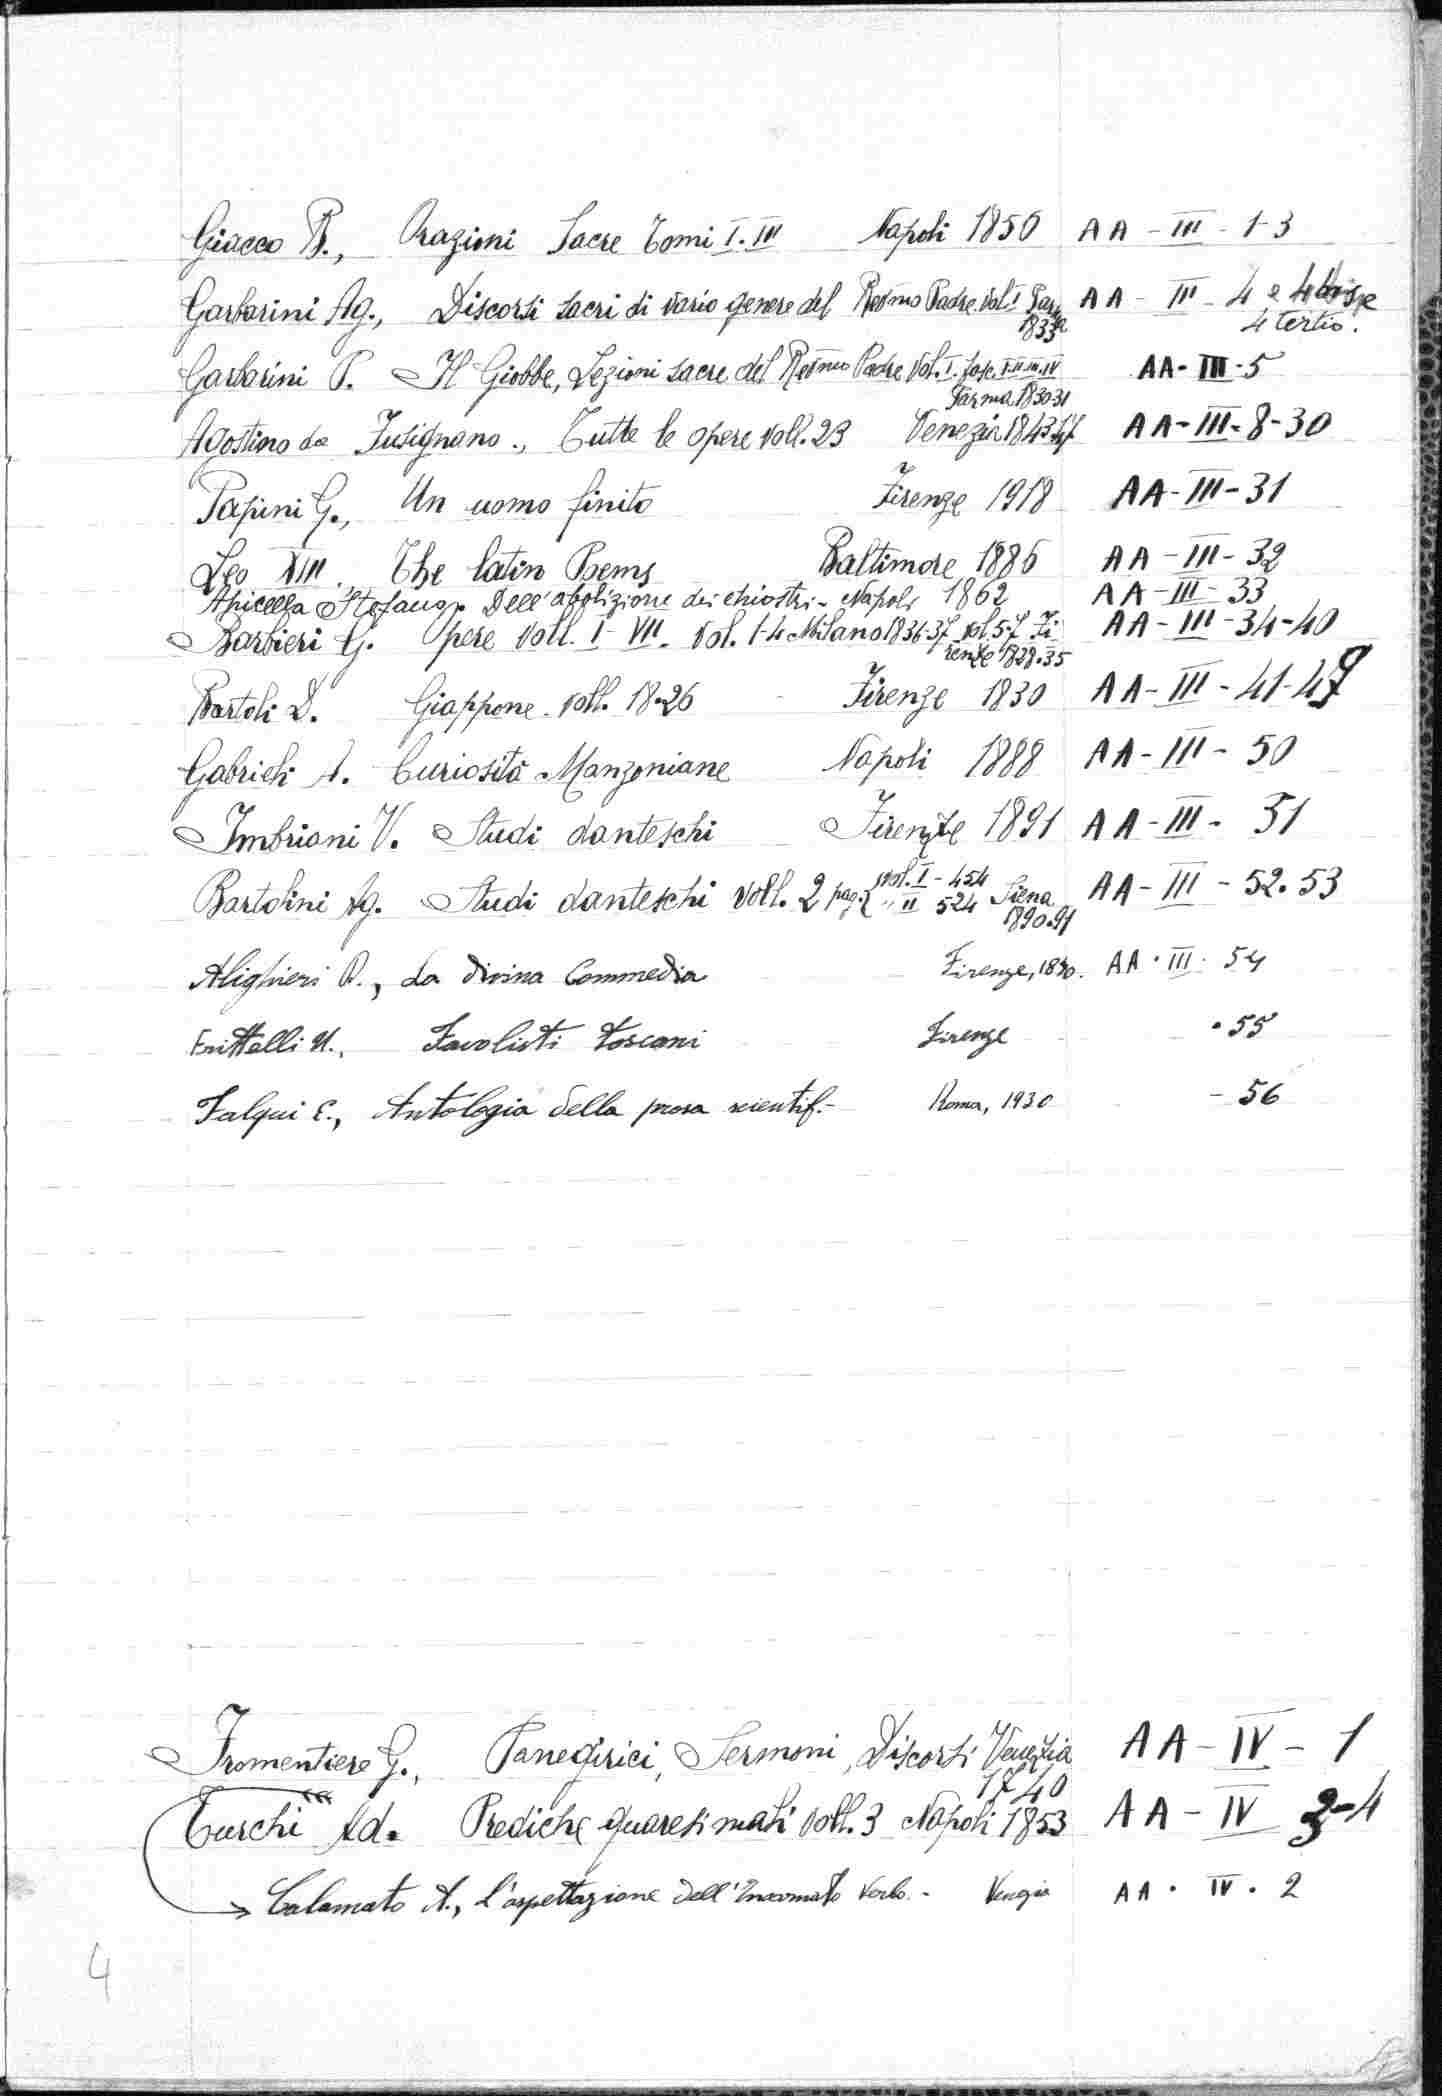 Giacco B., Orazioni Sacre Tomi I. III Napoli 1850 AA - III - 1-3
Garbarini Ag., Discorsi sacri di vario genere del Rev̅mo Padre. Vol. I Parma 1833 AA - III - 4 e 4 bis e 4 tertio.
Garbarini P. Il Giobbe, Lezioni sacre del Rev̅mo Padre Vol. I. fasc. I-II-III-IV Parma 1830-31 AA - III - 5
Agostino da Fusignano., Tutte le opere voll. 23 Venezia 1843 AA - III - 8-30
Papini G., Un uomo finito Firenze 1918 AA - III - 31
Leo XIII., The latin Poems Baltimore 1886 AA - III - 32
Apicella Stefano, Dell'abolizione dei chiostri - Napoli 1862 AA - III - 33
Barbieri G. Opere voll. I - VII. Vol. 1-4 Milano 1836-37 vol. 5-7 Firenze 1828-35 AA - III - 34-40
Bartoli D. Giappone. voll. 18-26 Firenze 1830 AA - III - 41-49
Gabrieli A. Curiosità Manzoniane Napoli 1888 AA - III - 50
Imbriani V. Studi danteschi Firenze 1891 AA - III - 51
Bartolini Ag. Studi danteschi Voll. 2 pag. { vol. I - 454 " II 524 Siena 1890-91 AA - III - 52.53
Alighieri D., La divina Commedia Firenze, AA · III · 54
Frittelli U., Favolisti toscani Firenze · 55
Falqui E., Antologia della prosa scientif. - Roma, 1930 - 56
Fromentiere G., Panegirici, Sermoni, Discorsi Venezia 1740 AA - IV - 1
Turchi Ad. Prediche quaresimali Voll. 3 Napoli 1853 AA - IV 3-4
→ Calamato A., L'aspettazione dell'Incarnato Verbo. - Venezia AA · IV · 2
4